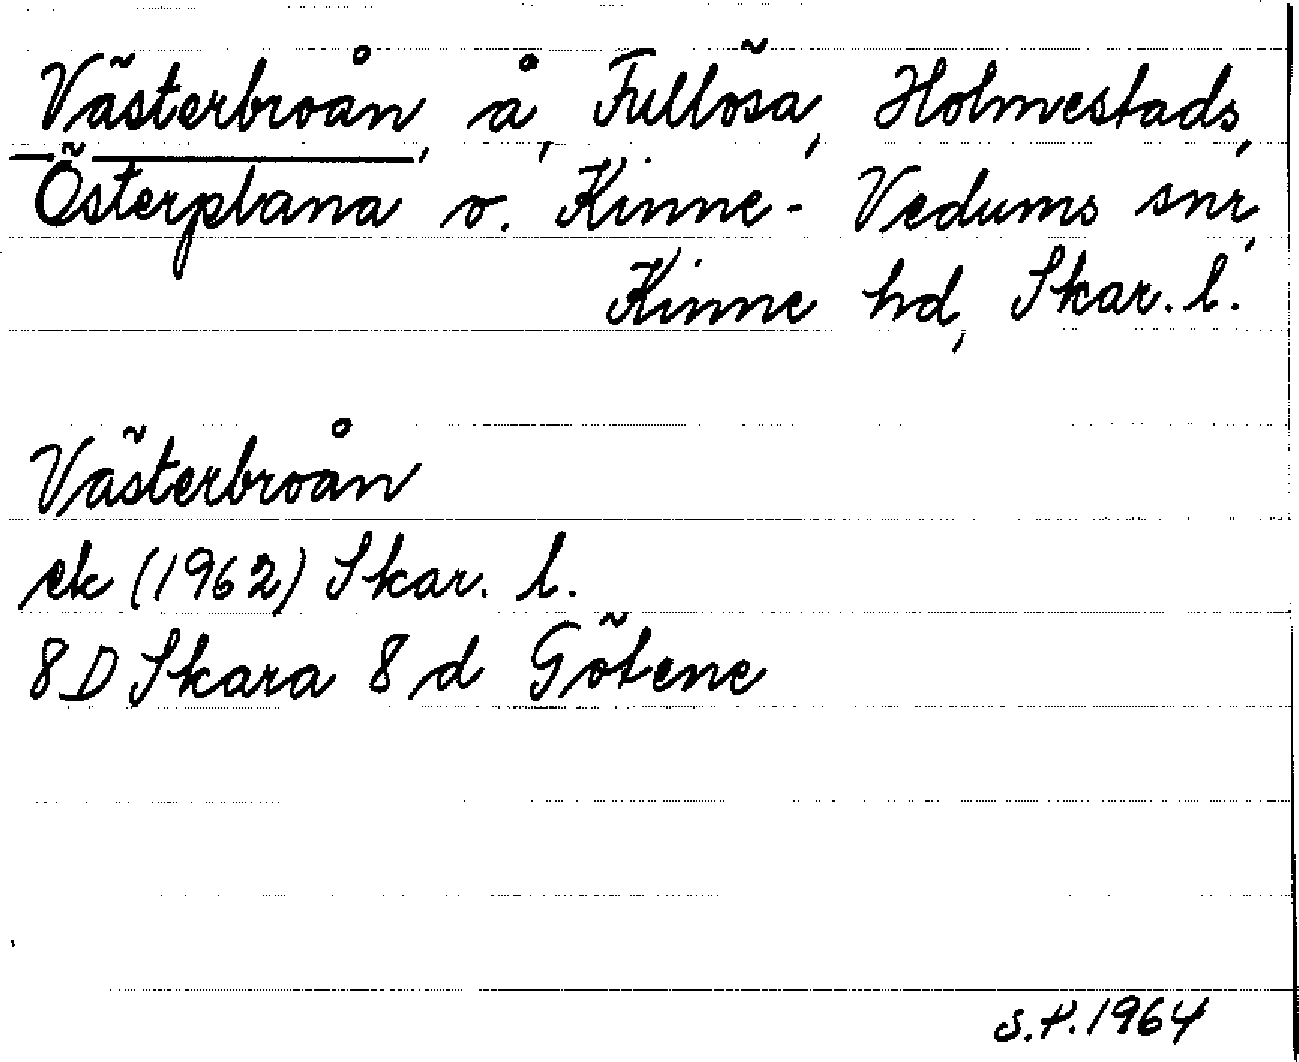 Västerbroån, å, Fullösa, Holmestads,
Österplana o. Kinne-Vedums snr,
Kinne hd, Skar. l.
Västerbroån
ek (1962) Skar. l.
8D Skara 8 d Götene
S.P. 1964